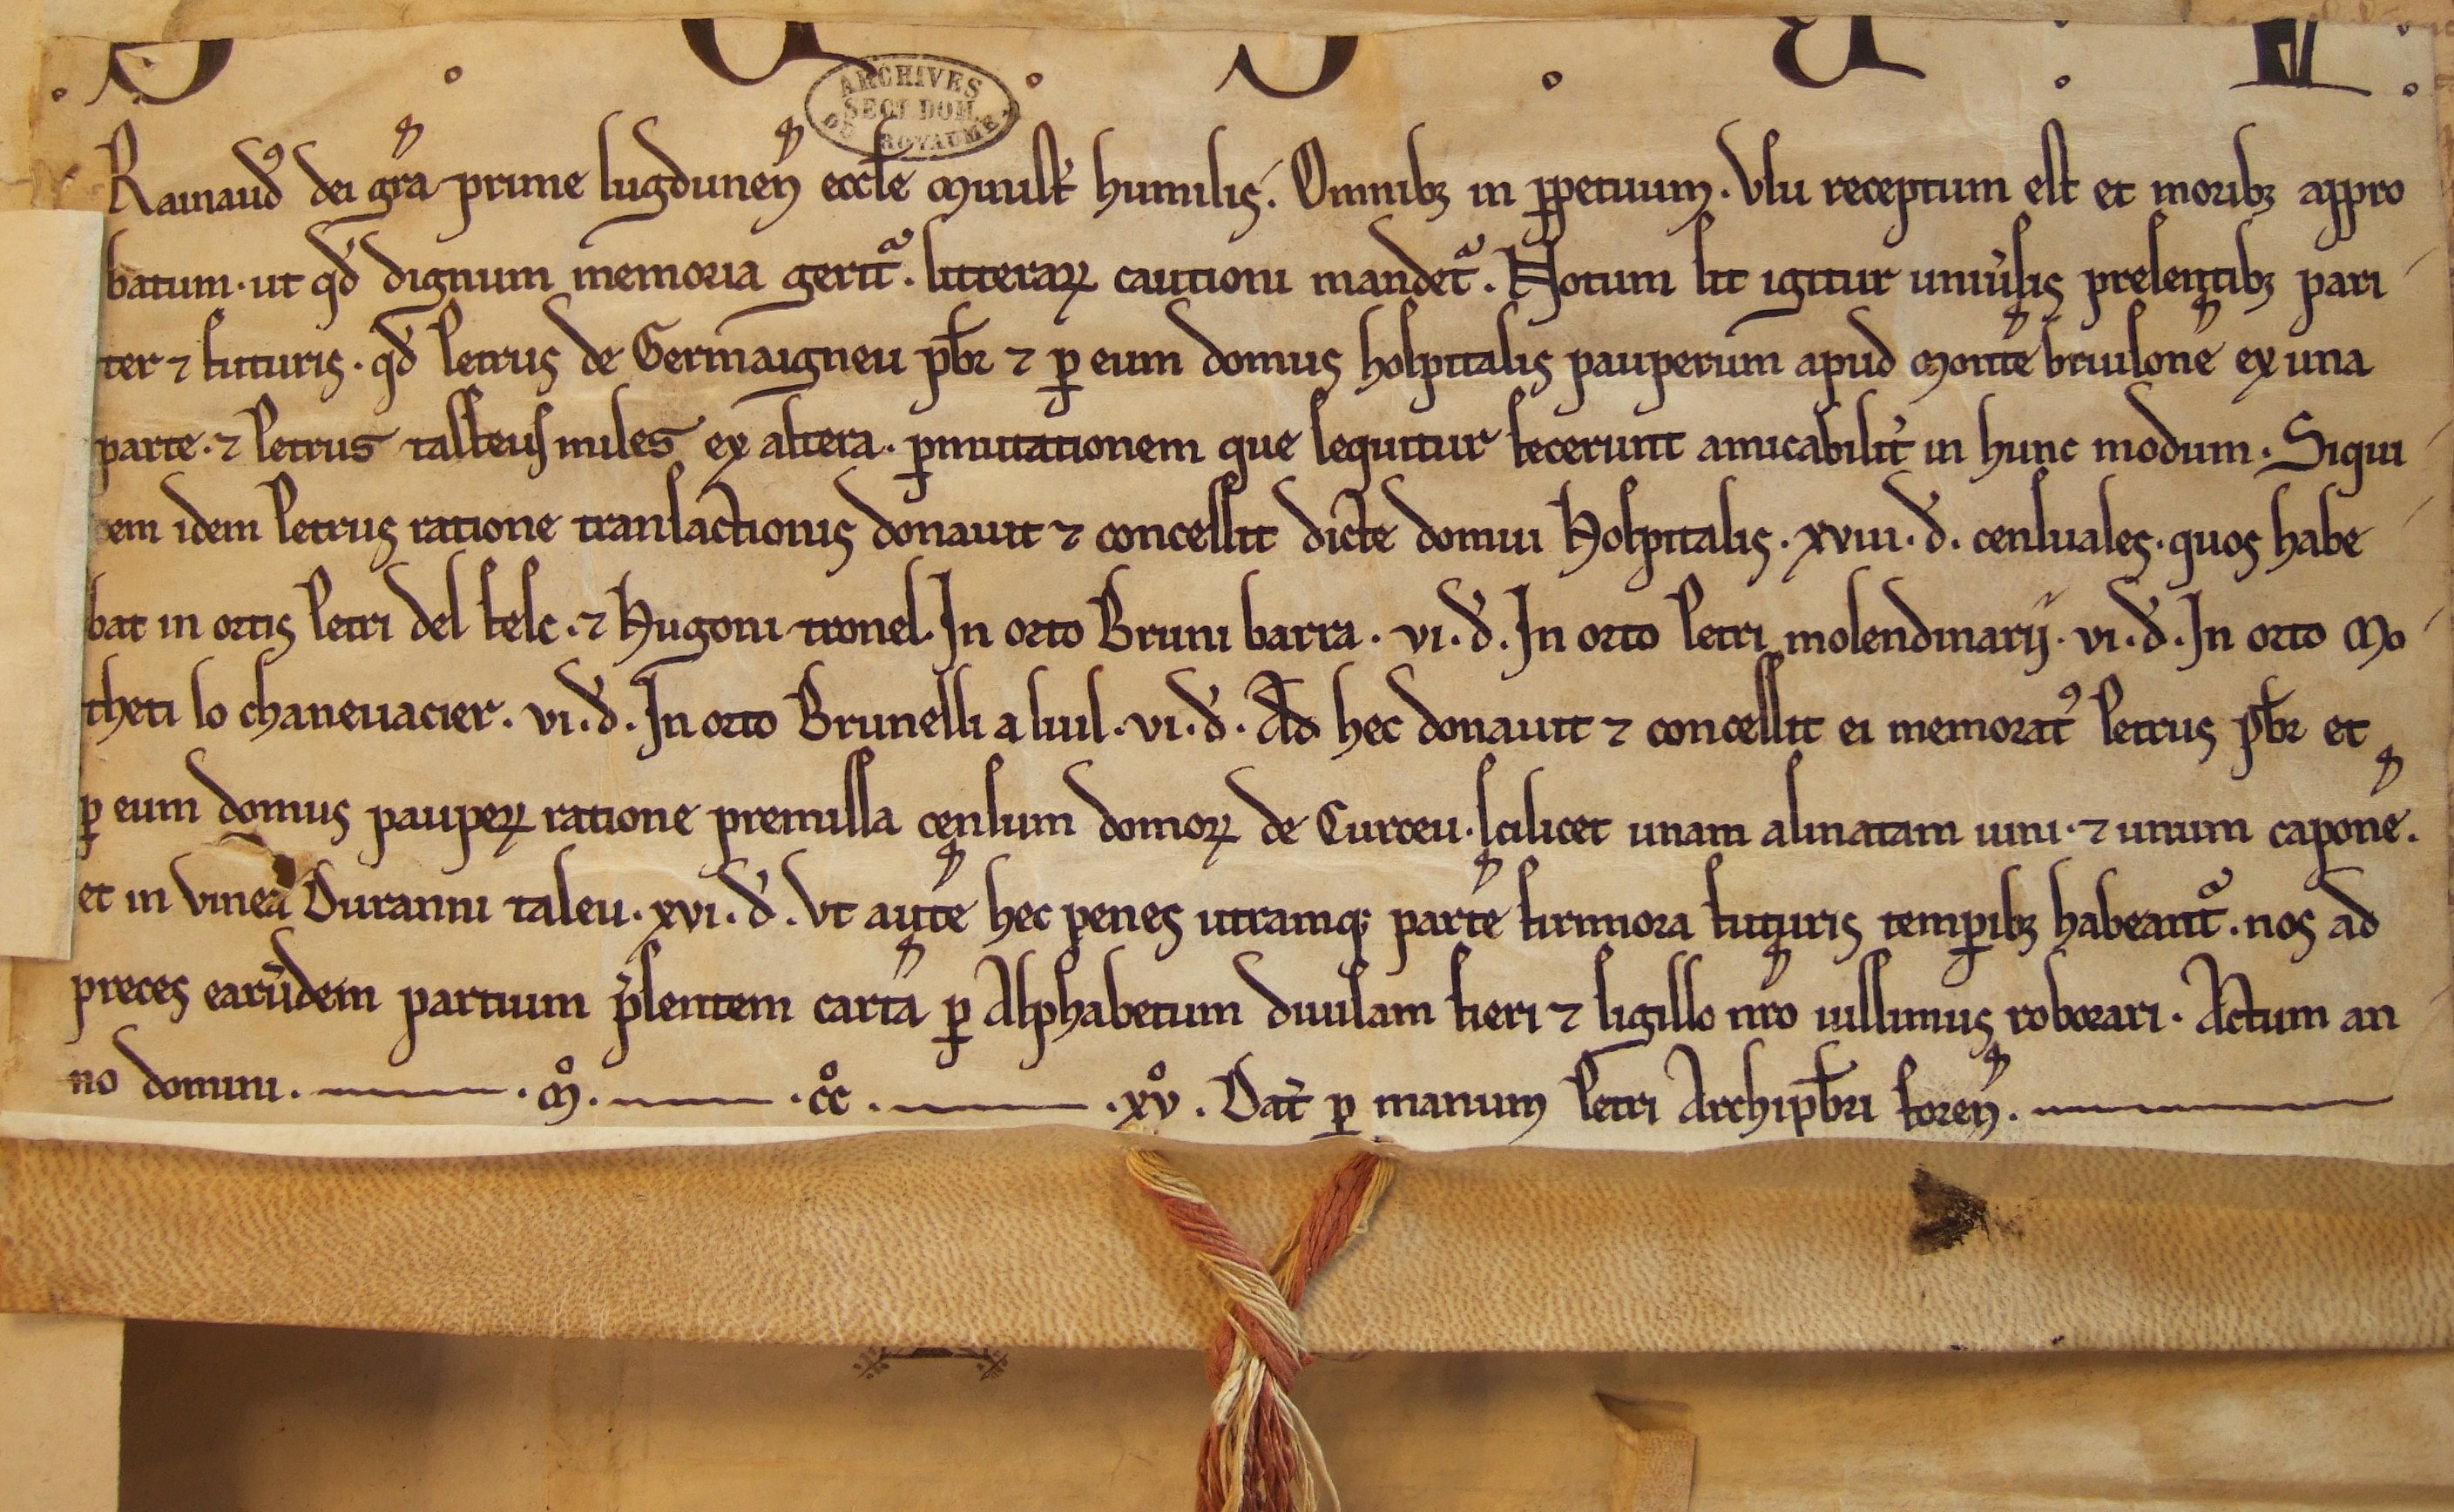 ARCHIVES
SECT DOM
DU ROYAUME
Rainaud⁹ dei gr̃a prime lugdunen̄ eccl̃e minist̃ humilis. Omnibꝫ in ꝑpetuum. Usu receptum est et moribꝫ appro
batum. ut qđ dignum memoria gerit᷑. litteraꝝ cautioni mandet᷑. Notum sit igitur uniu̾sis presentibꝫ pari
ter ⁊ futuris. qđ Petrus de Germaigneu pb̃r ⁊ ꝑ eum domus hospitalis pauperum apud montē briusonē ex una
parte. ⁊ Petrus rasteus miles ex altera. ꝑmutationem que sequitur fecerunt amicabilit̾ in hunc modum. Siqui
dem idem Petrus ratione transactionis donauit ⁊ concessit dicte domui Hospitalis. xviii. đ. censuales. quos habe
bat in ortis Petri del felc. ⁊ Hugoni tronel. In orto Bruni barra. vi. đ. In orto Petri molendinarij. vi. đ. In orto Mo
theti lo chaneuacier. vi. đ. In orto Brunelli aluil. vi. đ. Ad hec donauit ⁊ concessit ei memorat⁹ Petrus pb̃r et
ꝑ eum domus paupeꝝ ratione premissa censum domoꝝ de Curceu. scilicet unam asinatam uini. ⁊ unum caponē.
et in vinea Duranni taleu. xvi. đ. Vt autē hec penes utramqꝫ partē firmiora futuris temꝑibꝫ habeant᷑. nos ad
preces earūdem partium p̾sentem cartā ꝑ Alphabetum diuisam fieri ⁊ sigillo nr̃o iussimus roborari. Actum an
no domini. . m̊. . cc̊. . xv̊. Dat̃ ꝑ manum Petri Archipb̃ri foren̄.